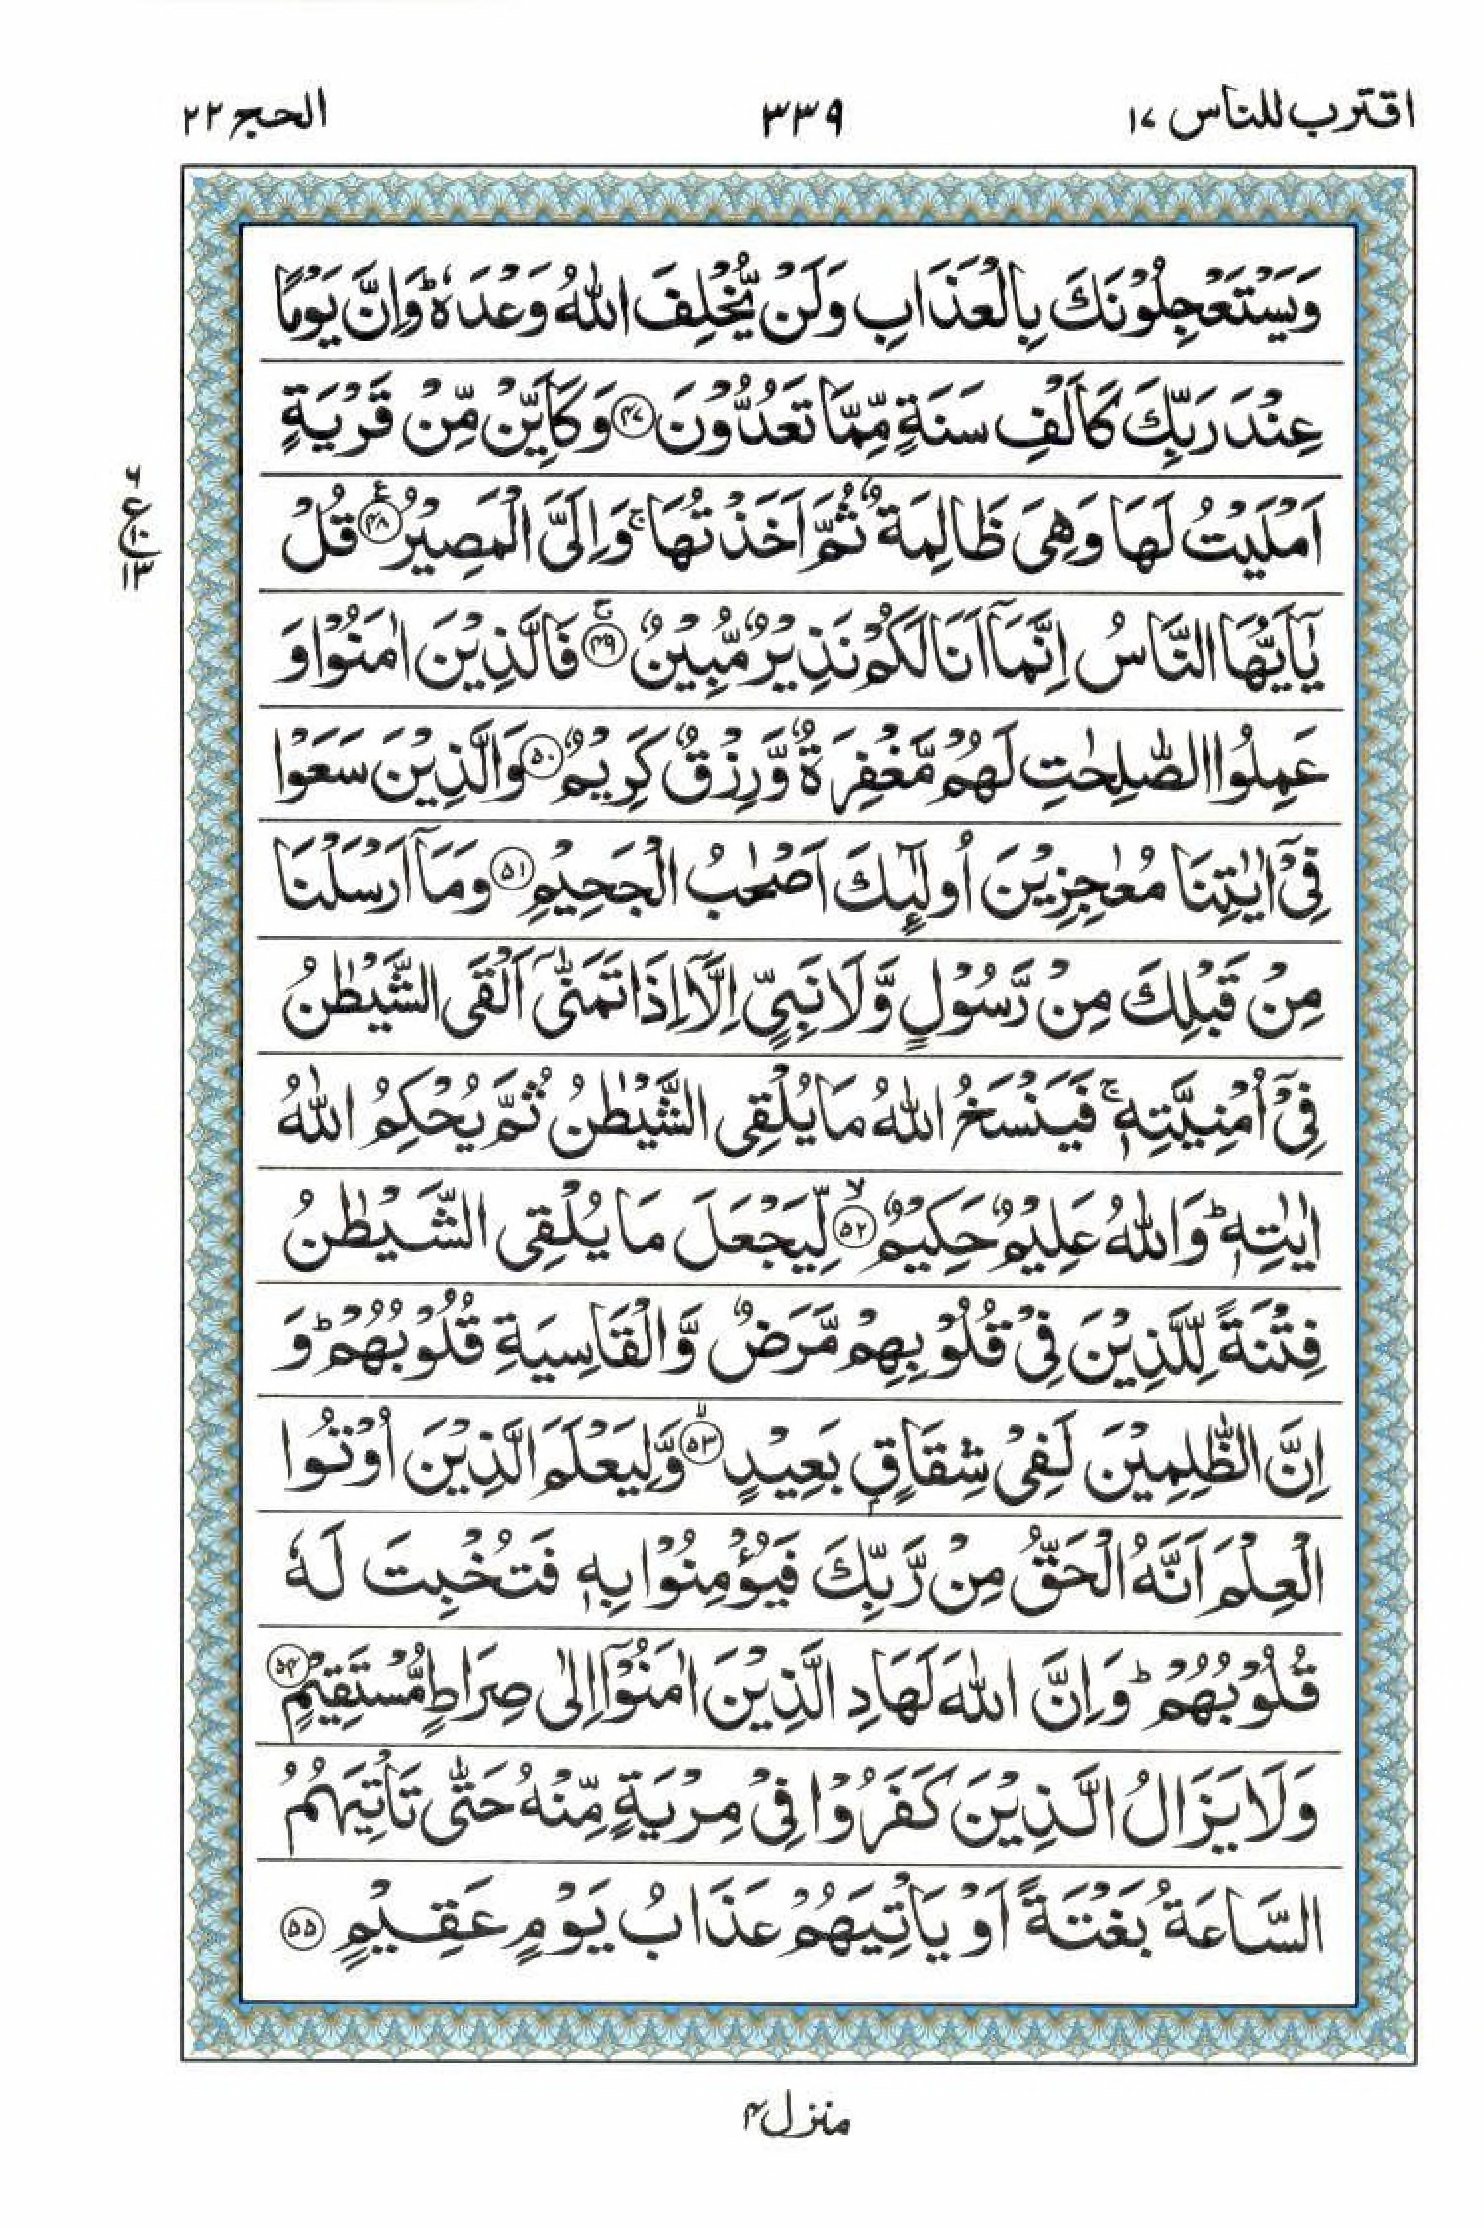 اقترب للناس ۱۷
۳۳۹
الحج ۲۲
وَيَسْتَعْجِلُوْنَكَ بِالْعَذَابِ وَلَنْ يُّخْلِفَ اللّٰهُ وَعْدَهٗ ؕ وَاِنَّ يَوْمًا
عِنْدَ رَبِّكَ كَاَلْفِ سَنَةٍ مِّمَّا تَعُدُّوْنَ ﴿۴۷﴾ وَكَاَيِّنْ مِّنْ قَرْيَةٍ
اَمْلَيْتُ لَهَا وَهِىَ ظَالِمَةٌ ثُمَّ اَخَذْتُهَا ۚ وَاِلَىَّ الْمَصِيْرُ ﴿۴۸﴾ قُلْ
يٰۤاَيُّهَا النَّاسُ اِنَّمَاۤ اَنَا لَكُمْ نَذِيْرٌ مُّبِيْنٌ ۚ‏ ﴿۴۹﴾ فَالَّذِيْنَ اٰمَنُوْا وَ
عَمِلُوا الصّٰلِحٰتِ لَهُمْ مَّغْفِرَةٌ وَّرِزْقٌ كَرِيْمٌ ﴿۵۰﴾ وَالَّذِيْنَ سَعَوْا
فِىْۤ اٰيٰتِنَا مُعٰجِزِيْنَ اُولٰٓٮِٕكَ اَصْحٰبُ الْجَحِيْمِ ﴿۵۱﴾ وَمَاۤ اَرْسَلْنَا
مِنْ قَبْلِكَ مِنْ رَّسُوْلٍ وَّلَا نَبِىٍّ اِلَّاۤ اِذَا تَمَنّٰٓى اَلْقَى الشَّيْطٰنُ
فِىْۤ اُمْنِيَّتِهٖ ۚ فَيَنْسَخُ اللّٰهُ مَا يُلْقِى الشَّيْطٰنُ ثُمَّ يُحْكِمُ اللّٰهُ
اٰيٰتِهٖ ؕ وَاللّٰهُ عَلِيْمٌ حَكِيْمٌ ۙ‏ ﴿۵۲﴾ لِّيَجْعَلَ مَا يُلْقِى الشَّيْطٰنُ
فِتْنَةً لِّلَّذِيْنَ فِىْ قُلُوْبِهِمْ مَّرَضٌ وَّالْقَاسِيَةِ قُلُوْبُهُمْ ؕ وَ
اِنَّ الظّٰلِمِيْنَ لَفِىْ شِقَاقٍۭ بَعِيْدٍ ۙ‏ ﴿۵۳﴾ وَّلِيَعْلَمَ الَّذِيْنَ اُوْتُوا
الْعِلْمَ اَنَّهُ الْحَقُّ مِنْ رَّبِّكَ فَيُؤْمِنُوْا بِهٖ فَتُخْبِتَ لَهٗ
قُلُوْبُهُمْ ؕ وَاِنَّ اللّٰهَ لَهَادِ الَّذِيْنَ اٰمَنُوْۤا اِلٰى صِرَاطٍ مُّسْتَقِيْمٍ ﴿۵۴﴾
وَلَا يَزَالُ الَّذِيْنَ كَفَرُوْا فِىْ مِرْيَةٍ مِّنْهُ حَتّٰى تَاْتِيَهُمُ
السَّاعَةُ بَغْتَةً اَوْ يَاْتِيَهُمْ عَذَابُ يَوْمٍ عَقِيْمٍ ﴿۵۵﴾
۶
ع
۱۰
۱۳
منزل ۴